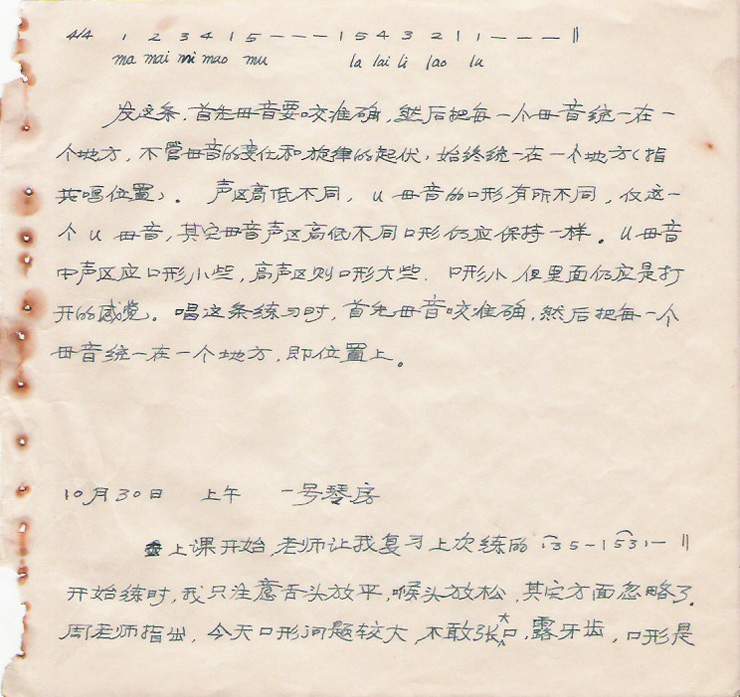 4/4 1 2 3 4 | 5 - - - | 5 4 3 2 | 1 - - - ‖
ma mai mi mao mu la lai li lao lu
发这条，首先母音要咬准确，然后把每一个母音统一在一
个地方，不管母音的变化和旋律的起伏，始终统一在一个地方（指
共鸣位置）。声区高低不同，u 母音的口形有所不同，仅这一
个 u 母音，其它母音声区高低不同口形仍应保持一样。u 母音
中声区应口形小些，高声区则口形大些. 口形小但里面仍应是打
开的感觉。唱这条练习时，首先母音咬准确，然后把每一个
母音统一在一个地方，即位置上。
10月30日 上午 一号琴房
上课开始，老师让我复习上次练的 1 3 5 - | 5 3 1 - ‖
开始练时，我只注意舌头放平，喉头放松，其它方面忽略了.
周老师指出，今天口形问题较大，不敢张大口，露牙齿，口形是